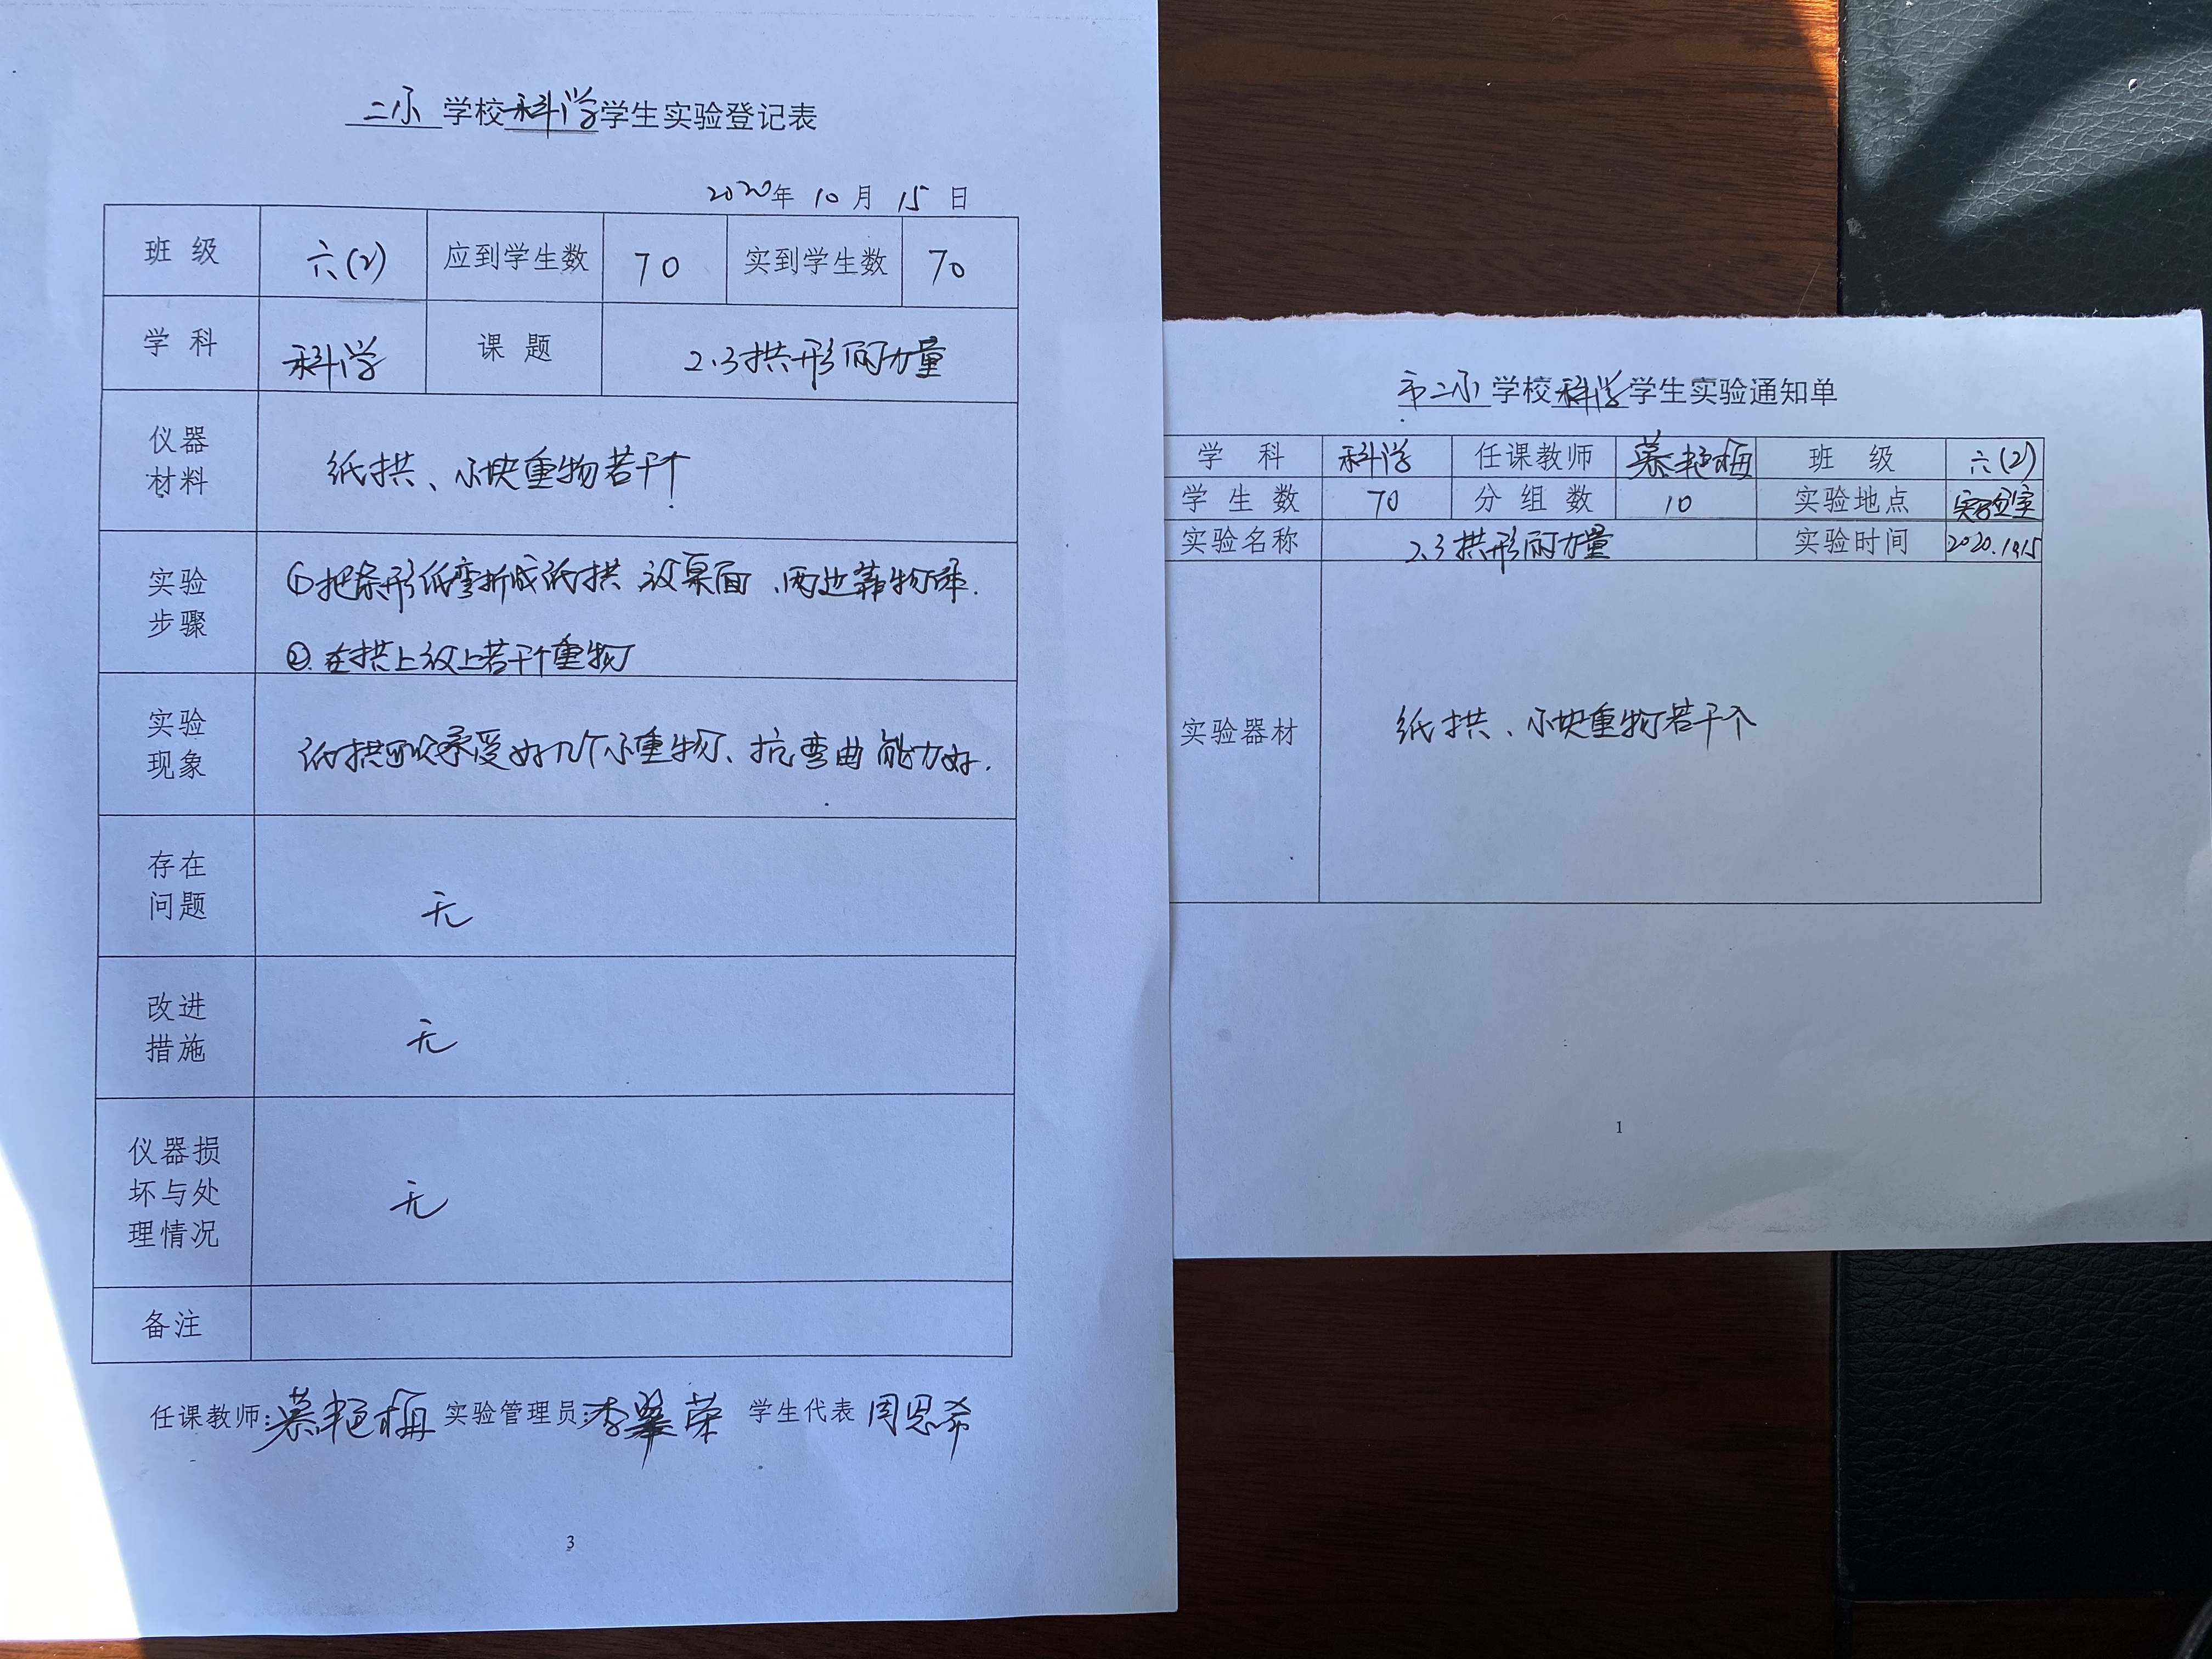 二小 学校 科学 学生实验登记表
2020年 10 月 15 日
班 级 六(2) 应到学生数 70 实到学生数 70
学 科 科学 课 题 2.3拱形的力量
仪器
材料
纸拱、小块重物若干个
实验
步骤
①把条形纸弯折成纸拱 放桌面、两边靠物体.
②.在拱上放上若干个重物
实验
现象
纸拱可以承受好几个小重物、抗弯曲能力好.
存在
问题
无
改进
措施
无
仪器损
坏与处
理情况
无
备注
任课教师:慕艳梅 实验管理员:李翠荣 学生代表 周恩希
3
市二小 学校 科学 学生实验通知单
学 科 科学 任课教师 慕艳梅 班 级 六(2)
学 生 数 70 分 组 数 10 实验地点 实验室
实验名称 2.3拱形的力量 实验时间 2020.10.15
实验器材 纸拱、小块重物若干个
1